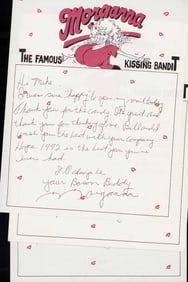 Morganna
THE FAMOUS KISSING BANDIT
Hi Mike
I was so "happy" to you my mailbox.
Thank you for the candy. It's good and
thank you for thinking of me. Bill and I
wish you the best with your company.
Hope 1992 is the best year you've
ever had.
I'll always be
your Bosom Buddy
Morganna